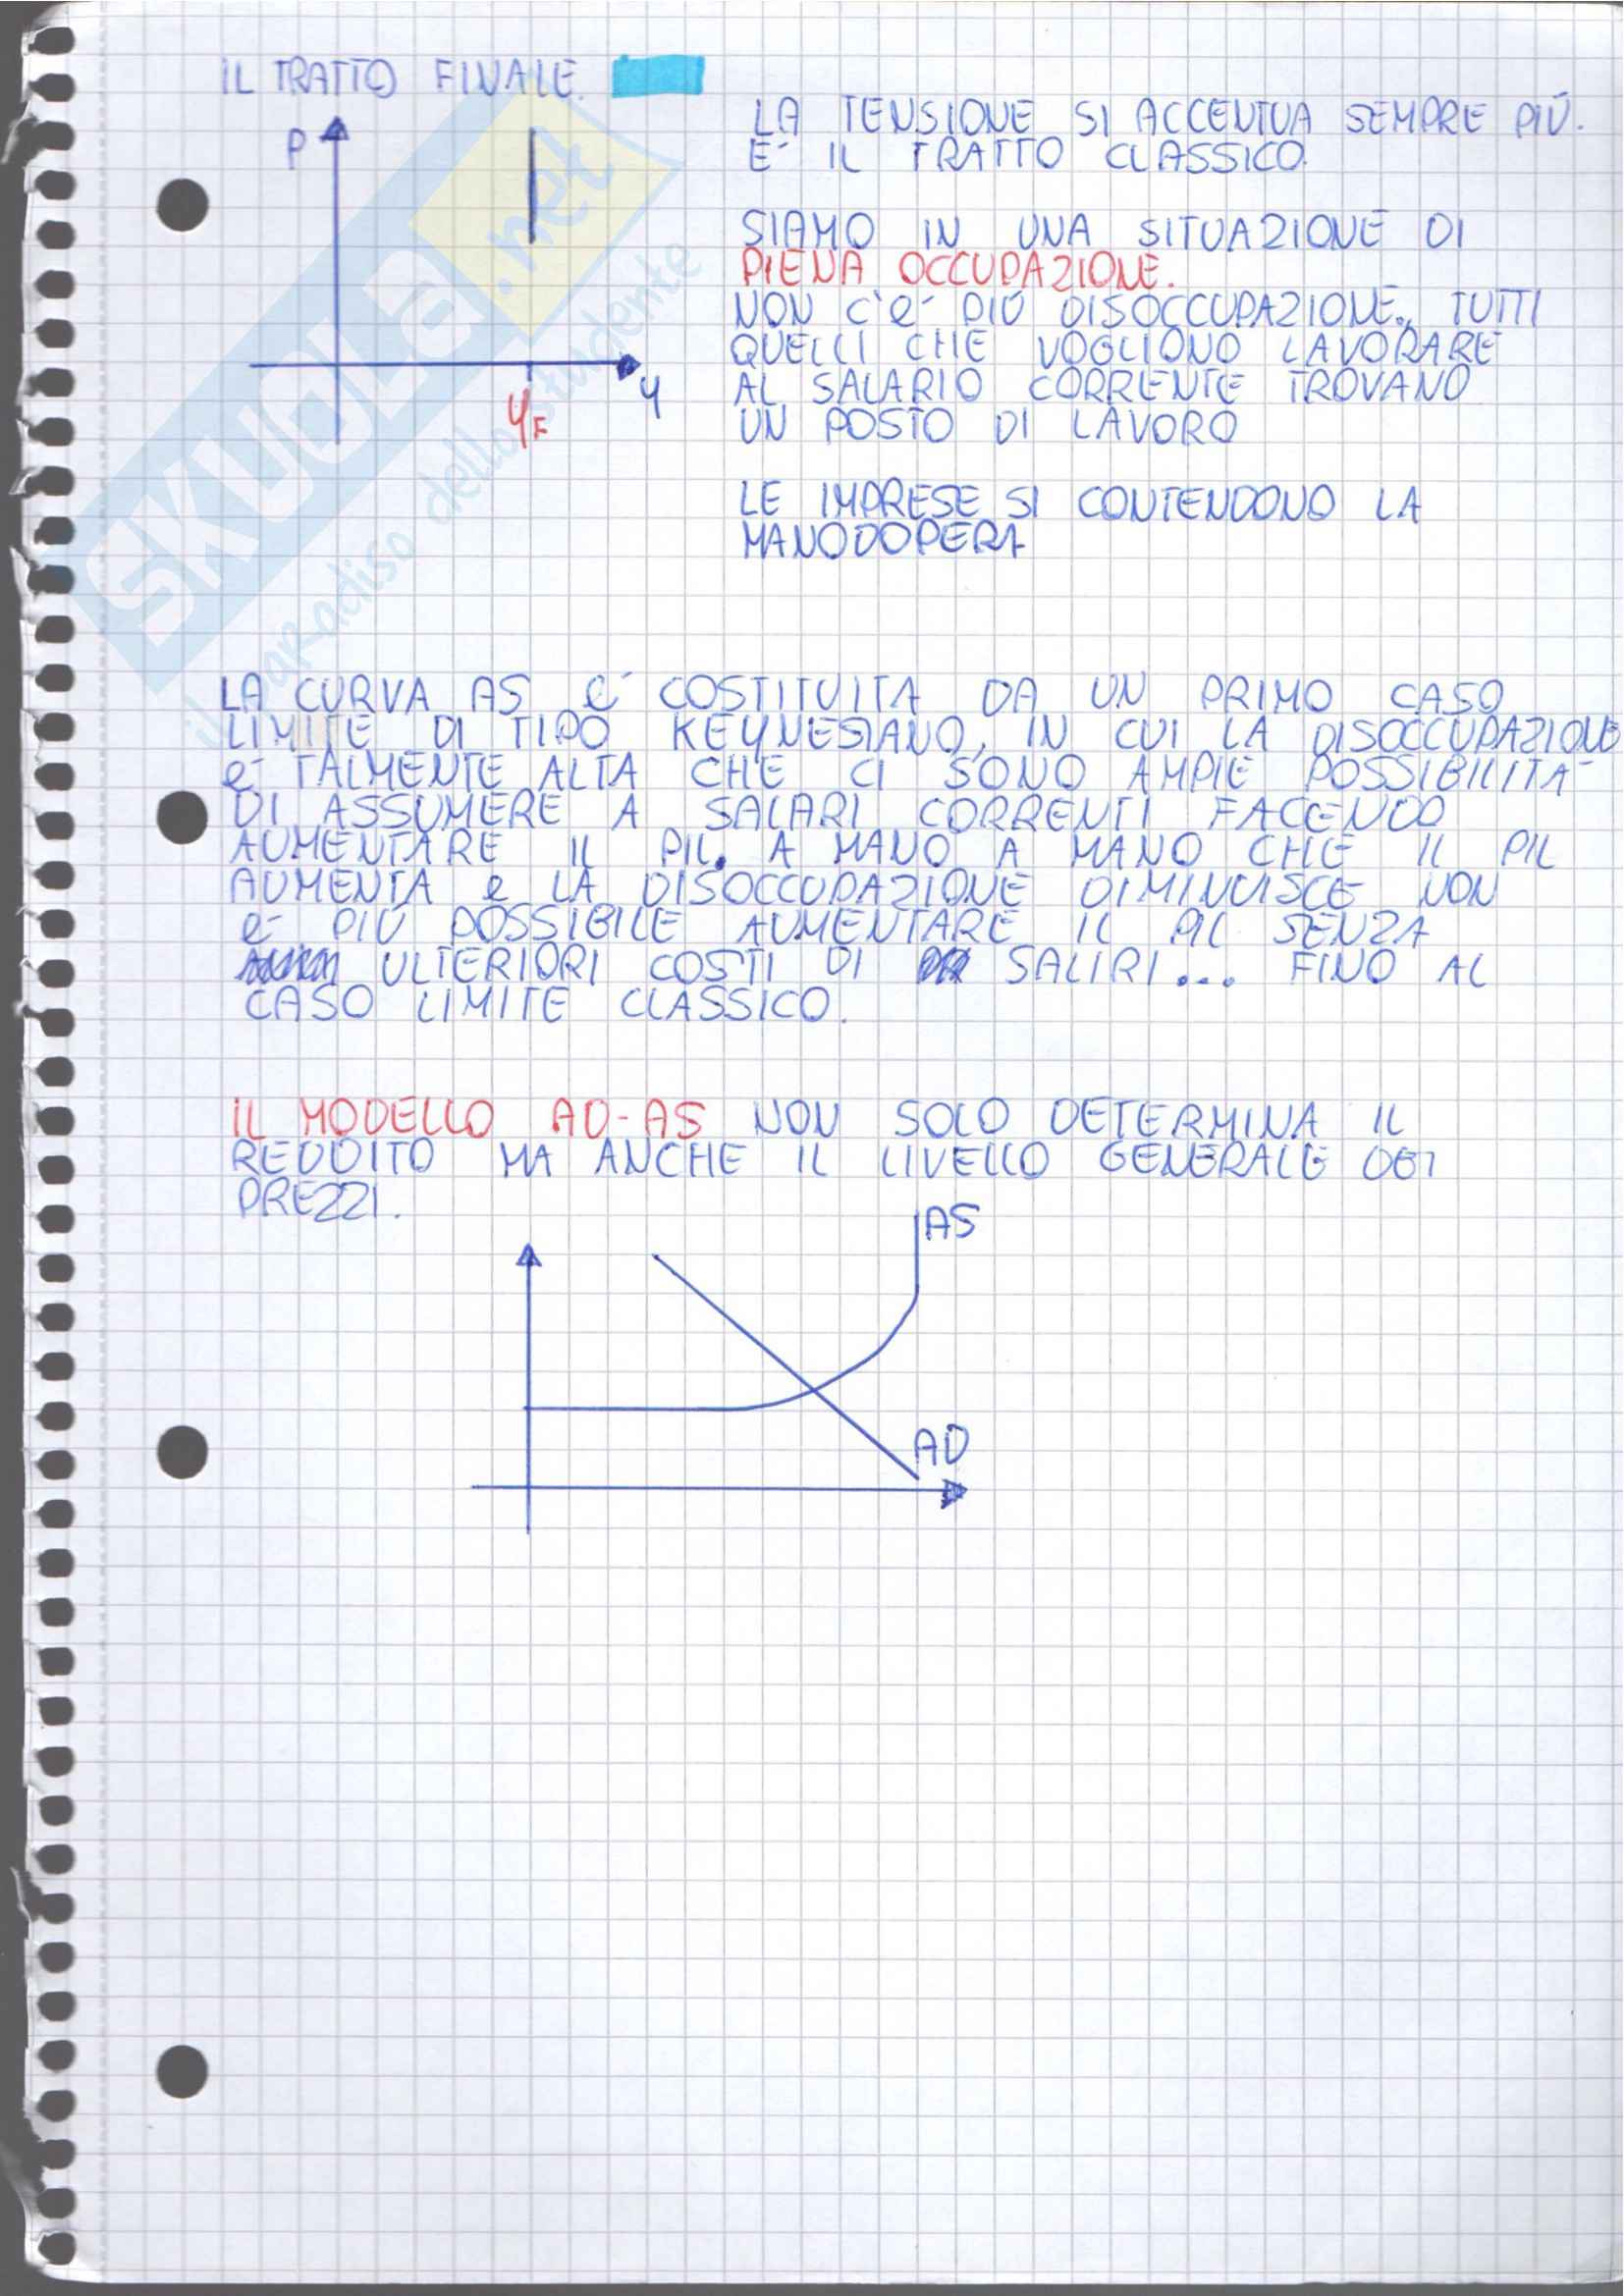 IL TRATTO FINALE.
P
Y
YF
LA TENSIONE SI ACCENTUA SEMPRE PIÚ.
E' IL TRATTO CLASSICO.
SIAMO IN UNA SITUAZIONE DI
PIENA OCCUPAZIONE.
NON C'e' PIÚ DISOCCUPAZIONE. TUTTI
QUELLI CHE VOGLIONO LAVORARE
AL SALARIO CORRENTE TROVANO
UN POSTO DI LAVORO
LE IMPRESE SI CONTENDONO LA
MANODOPERA
LA CURVA AS e' COSTITUITA DA UN PRIMO CASO
LIMITE DI TIPO KEYNESIANO, IN CUI LA DISOCCUPAZIONE
e' TALMENTE ALTA CHE CI SONO AMPIE POSSIBILITA'
DI ASSUMERE A SALARI CORRENTI FACENDO
AUMENTARE IL PIL. A MANO A MANO CHE IL PIL
AUMENTA e LA DISOCCUPAZIONE DIMINUISCE NON
e' PIÚ POSSIBILE AUMENTARE IL PIL SENZA
ULTERIORI COSTI DI SALIRI... FINO AL
CASO LIMITE CLASSICO.
IL MODELLO AD-AS NON SOLO DETERMINA IL
REDDITO MA ANCHE IL LIVELLO GENERALE DEI
PREZZI.
AS
AD
SKUOLA.net
il paradiso dello studente